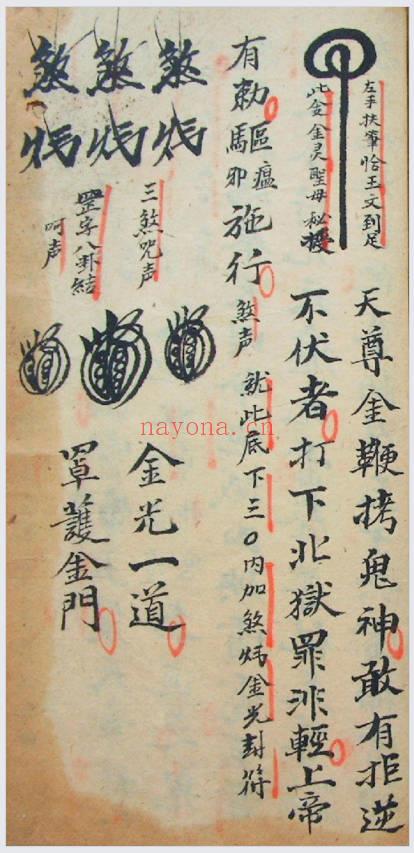 左手扶筆恰王文到足
此令金灵聖母秘授
天尊金鞭拷鬼神敢有拒逆
不伏者打下北獄罪非輕上帝
有勅驅邪瘟施行
煞声
就此底下三〇内加煞炁金光封符
煞煞煞
三煞咒声
罡字八卦結
呵声
金光一道
罩護金門
nayona.cn